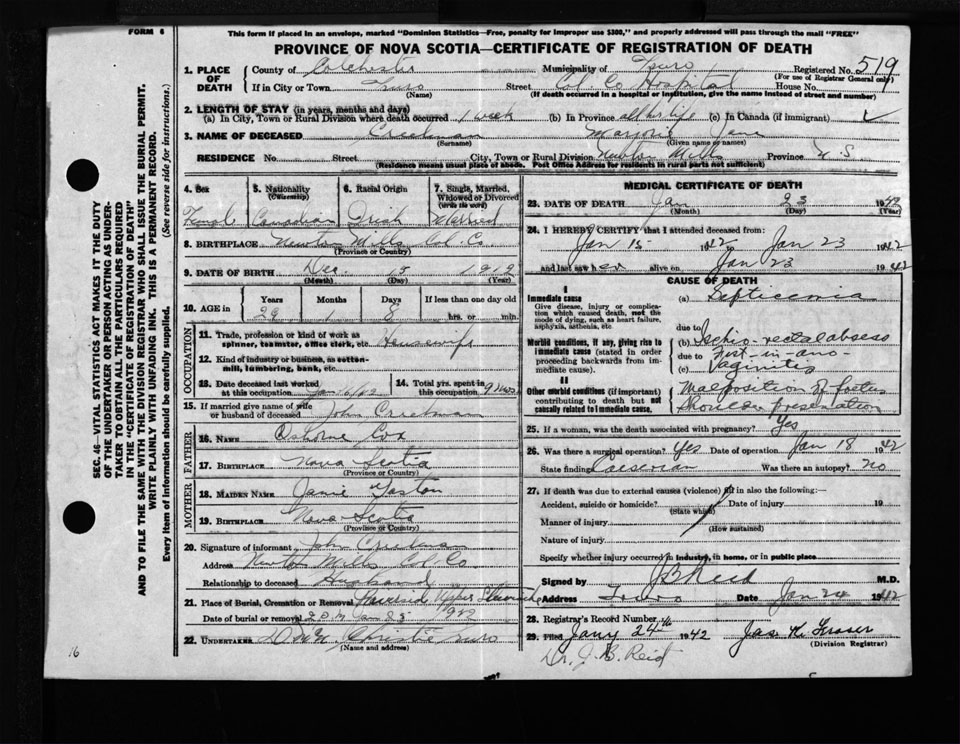 FORM 6
This form if placed in an envelope, marked "Dominion Statistics—Free, penalty for improper use $300," and properly addressed will pass through the mail "FREE"
PROVINCE OF NOVA SCOTIA—CERTIFICATE OF REGISTRATION OF DEATH
1. PLACE OF DEATH
County of Colchester Municipality of Truro Registered No. 519
(For use of Registrar General only)
If in City or Town Truro Street Col. Co Hospital House No.
(Name) (If death occurred in a hospital or institution, give the name instead of street and number)
2. LENGTH OF STAY (in years, months and days)
(a) In City, Town or Rural Division where death occurred 1 week (b) In Province all her life (c) In Canada (if immigrant)
3. NAME OF DECEASED Marjorie Jane
(Surname) (Given name or names)
RESIDENCE No. Street City, Town or Rural Division Newton Mills Province N S
(Residence means usual place of abode. Post Office Address for Residents in rural parts not sufficient)
4. Sex Female
5. Nationality (Citizenship) Canadian
6. Racial Origin Irish
7. Single, Married, Widowed or Divorced (Write the word) Married
8. BIRTHPLACE Newton Mills Col. Co.
(Province or Country)
9. DATE OF BIRTH Dec. 15 1912
(Month) (Day) (Year)
10. AGE in Years Months Days If less than one day old
29 1 8 hrs. or min.
OCCUPATION
11. Trade, profession or kind of work as spinner, teamster, office clerk, etc. Housewife
12. Kind of industry or business, as cotton-mill, lumbering, bank, etc.
13. Date deceased last worked at this occupation
14. Total yrs. spent in this occupation
15. If married give name of wife or husband of deceased John
FATHER
16. NAME Osborne Cox
17. BIRTHPLACE Nova Scotia
(Province or Country)
MOTHER
18. MAIDEN NAME Janie
19. BIRTHPLACE Nova Scotia
(Province or Country)
20. Signature of informant John
Address Newton Mills Col Co
Relationship to deceased Husband
21. Place of Burial, Cremation or Removal Riverside Upper Stewiacke
Date of burial or removal 1942
22. UNDERTAKER Christie Truro
(Name and address)
MEDICAL CERTIFICATE OF DEATH
23. DATE OF DEATH Jan 23 1942
(Month) (Day) (Year)
24. I HEREBY CERTIFY that I attended deceased from:
Jan 15 1942 Jan 23 1942
and last saw her alive on Jan 23 1942
CAUSE OF DEATH
I
Immediate cause
Give disease, injury or complication which caused death, not the mode of dying, such as heart failure, asphyxia, asthenia, etc
(a) Septicemia
due to
Morbid conditions, if any, giving rise to immediate cause (stated in order proceeding backwards from immediate cause).
(b) Ischio-rectal abscess
due to Fist-in-ano
(c) Vaginitis
II
Other morbid conditions (if important) contributing to death but not causally related to immediate cause.
Malposition of foetus
Shoulder presentation
25. If a woman, was the death associated with pregnancy? Yes
26. Was there a surgical operation? Yes Date of operation Jan 18 1942
State finding Caeserian Was there an autopsy? No
27. If death was due to external causes (violence) fill in also the following:—
Accident, suicide or homicide? Date of injury 19
(State which)
Manner of injury
(How sustained)
Nature of injury
Specify whether injury occurred in industry, in home, or in public place
Signed by J B Reid M.D.
Address Truro Date Jan 24 1942
28. Registrar's Record Number
29. Filed Jany 24th 1942 Jas. K. Fraser
(Division Registrar)
Dr. J. B. Reid
16
SEC. 46—VITAL STATISTICS ACT MAKES IT THE DUTY
OF THE UNDERTAKER OR PERSON ACTING AS UNDER-
TAKER TO OBTAIN ALL THE PARTICULARS REQUIRED
IN THE "CERTIFICATE OF REGISTRATION OF DEATH"
AND TO FILE THE SAME WITH THE DIVISION REGISTRAR WHO SHALL ISSUE THE BURIAL PERMIT.
WRITE PLAINLY WITH UNFADING INK. THIS IS A PERMANENT RECORD.
Every item of information should be carefully supplied. (See reverse side for instructions.)